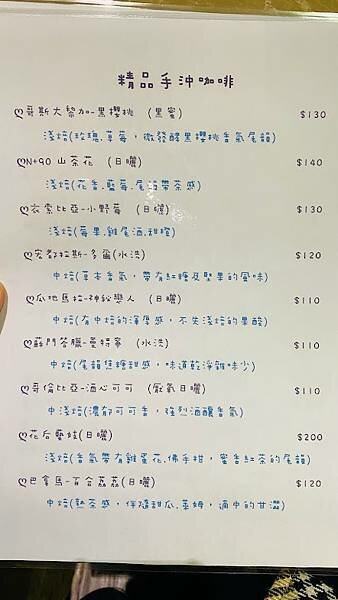 精品手沖咖啡
ღ哥斯大黎加-黑櫻桃 (黑蜜) $130
淺焙(玫瑰.草莓,微發酵黑櫻桃香氣尾韻)
ღN+90 山茶花 (日曬) $140
淺焙(花香.藍莓.尾沿帶茶感)
ღ衣索比亞-小野莓 (日曬) $130
淺焙(莓果.雞尾酒.甜橙)
ღ宏都拉斯-多爾(水洗) $120
中焙(草本香氣,帶有紅糖及堅果的風味)
ღ瓜地馬拉-神秘戀人 (日曬) $110
中焙(有中焙的渾厚感,不失淺焙的果酸)
ღ蘇門答臘-曼特寧 (水洗) $110
中焙(尾韻焦糖甜感,味道乾淨雜味少)
ღ哥倫比亞-酒心可可 (厭氧日曬) $110
中淺焙(濃郁可可香,強烈酒釀香氣)
ღ花后藝妓(日曬) $200
淺焙(香氣帶有雞蛋花.佛手柑,蜜香紅茶的尾韻)
ღ巴拿馬-百合荔荔(日曬) $120
中焙(熱茶感,伴隨甜瓜.萊姆,適中的甘澀)